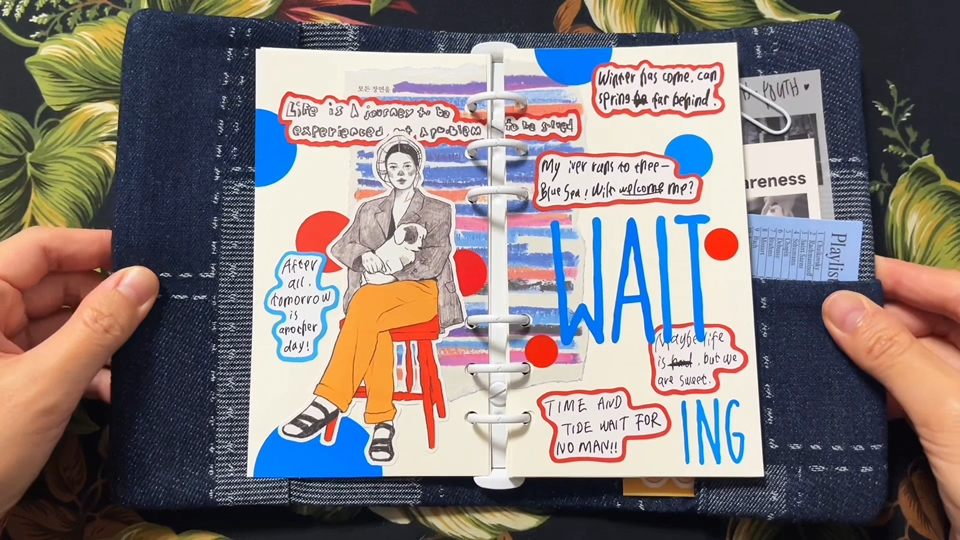 모든 장면을
Life is A journey to be
experienced, not A problem to be solved
After
all,
tomorrow
is
another
day!
Winter has come, can
spring be far behind.
My river runs to thee—
Blue Sea! Wilt welcome me?
WAIT
Maybe life
is hard, but we
are sweet.
TIME AND
TIDE WAIT FOR
NO MAN!!
ING
YOUTH
areness
Playlist